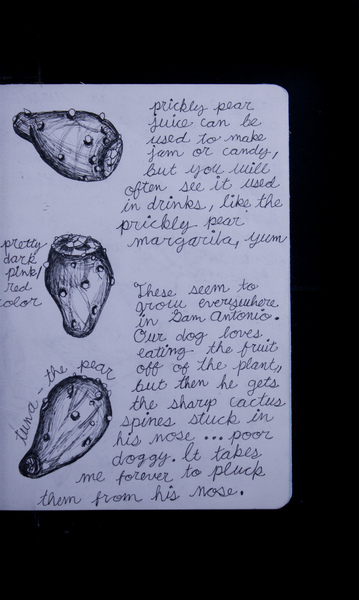 prickly pear
juice can be
used to make
jam or candy,
but you will
often see it used
in drinks, like the
prickly pear
margarita, yum
pretty
dark
pink/
red
color
These seem to
grow everywhere
in San Antonio.
Our dog loves
eating the fruit
off of the plant,
but then he gets
the sharp cactus
spines stuck in
his nose ... poor
doggy. It takes
me forever to pluck
them from his nose.
tuna - the pear